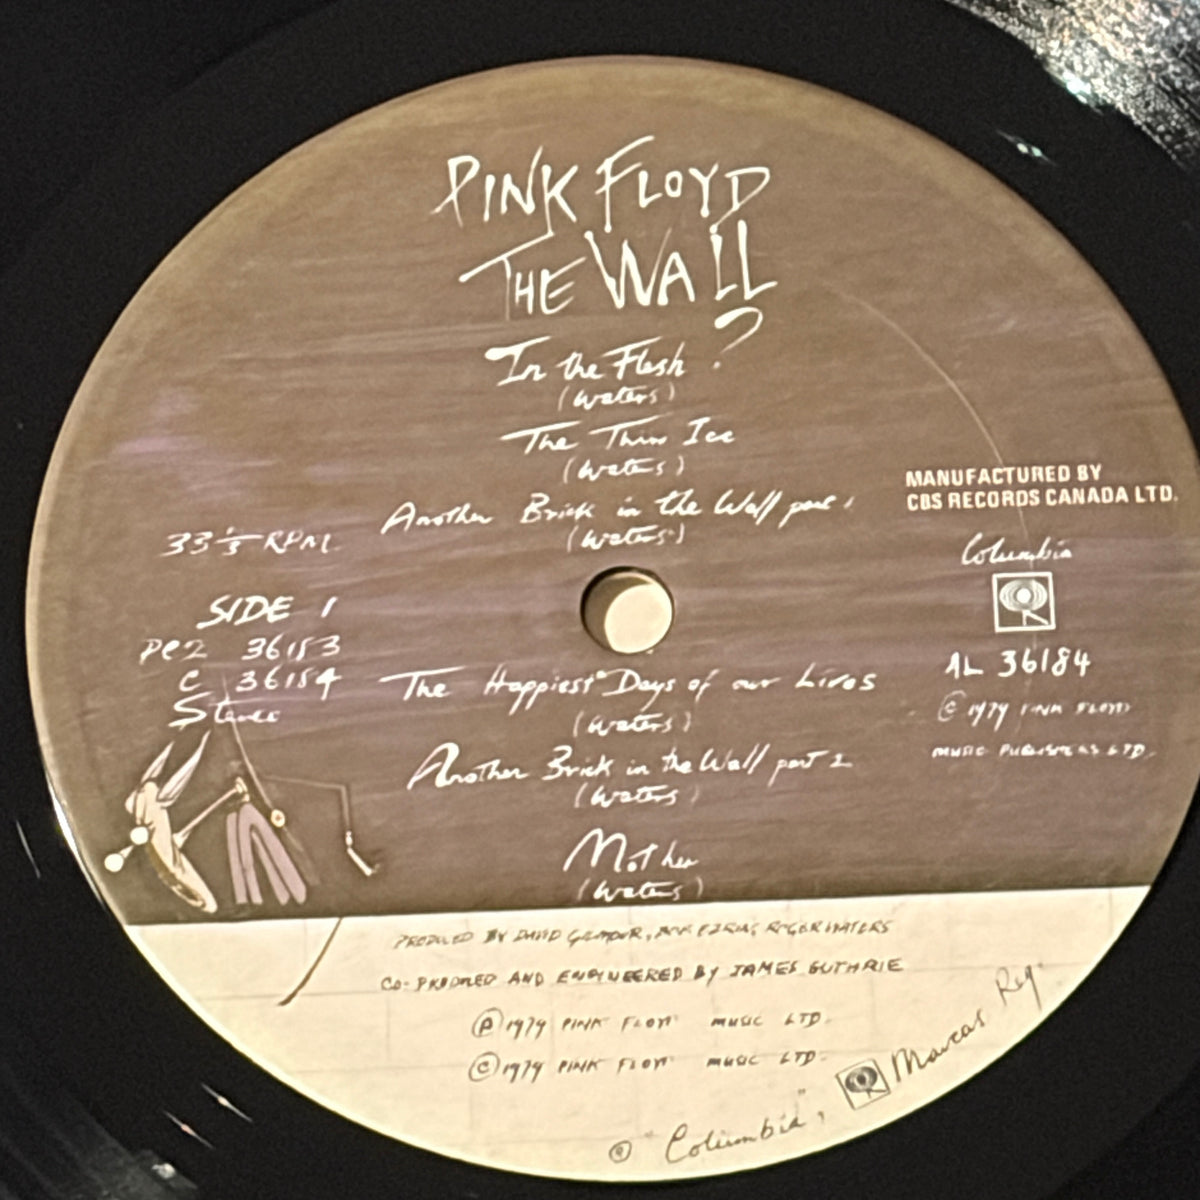 PINK FLOYD
THE WALL
In the Flesh ?
(Waters)
The Thin Ice
(Waters)
Another Brick in the Wall part 1
(Waters)
MANUFACTURED BY
CBS RECORDS CANADA LTD.
33 1/3 RPM
SIDE 1
PC2 36183
C 36184
Stereo
Columbia
AL 36184
© 1979 PINK FLOYD
MUSIC PUBLISHERS LTD.
The Happiest Days of our Lives
(Waters)
Another Brick in the Wall part 2
(Waters)
Mother
(Waters)
PRODUCED BY DAVID GILMOUR, BOB EZRIN, ROGER WATERS
CO-PRODUCED AND ENGINEERED BY JAMES GUTHRIE
℗ 1979 PINK FLOYD MUSIC LTD.
© 1979 PINK FLOYD MUSIC LTD.
® "Columbia", Marcas Reg.